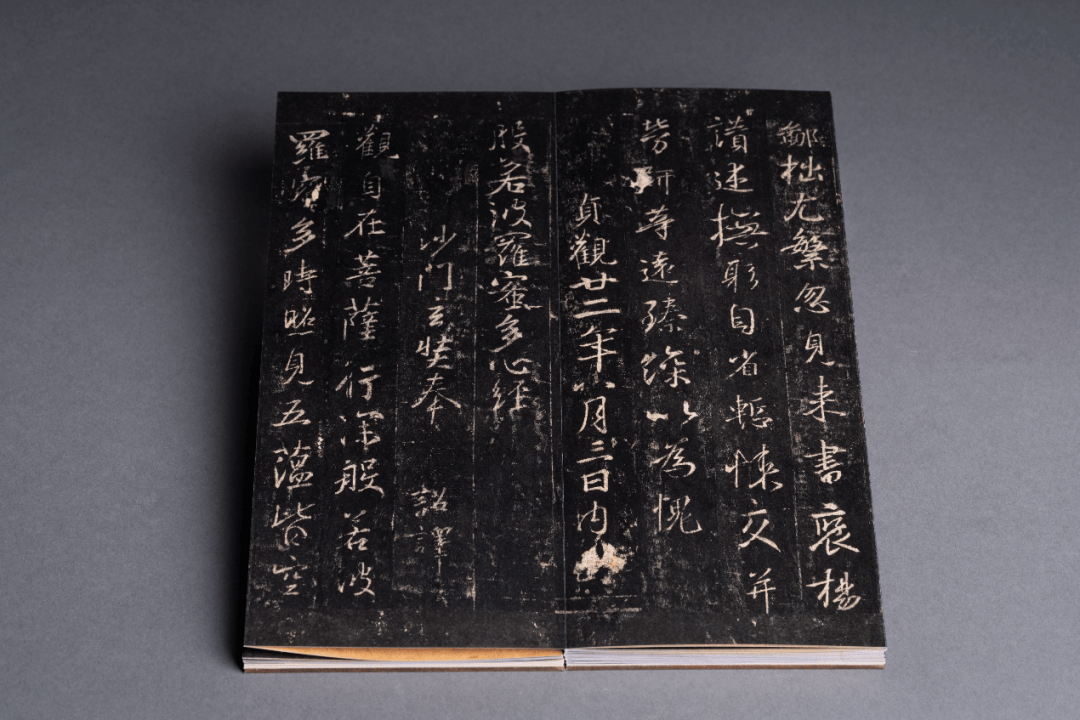 鄙拙尤繁忽見来書褒揚
讃述撫躬自省慙悚交并
勞師等遠臻深以為愧
貞觀廿二年八月三日內
般若波羅蜜多心經
沙門玄奘奉 詔譯
觀自在菩薩行深般若波
羅蜜多時照見五蘊皆空